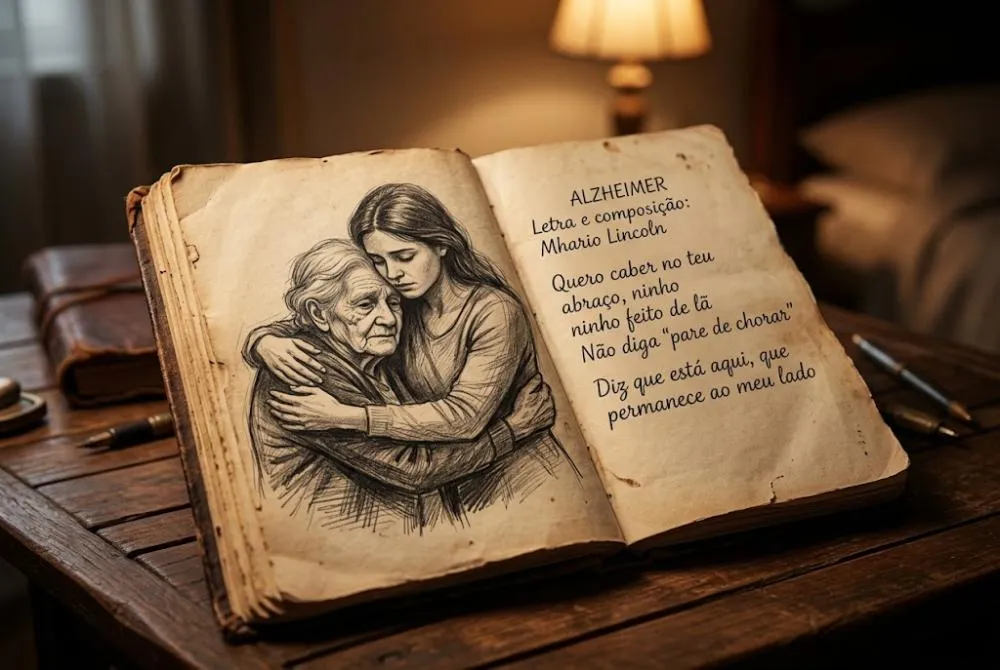 ALZHEIMER
Letra e composição:
Mhario Lincoln
Quero caber no teu
abraço, ninho
ninho feito de lã
Não diga “pare de chorar"
Diz que está aqui, que
permanece ao meu lado